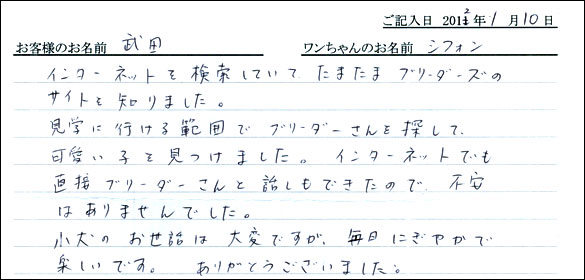 ご記入日 2012年1月10日
お客様のお名前 武田 ワンちゃんのお名前 シフォン
インターネットを検索していて、たまたまブリーダーズの
サイトを知りました。
見学に行ける範囲でブリーダーさんを探して、
可愛い子を見つけました。インターネットでも
直接ブリーダーさんと話しもできたので、不安
はありませんでした。
小犬のお世話は大変ですが、毎日にぎやかで
楽しいです。ありがとうございました。